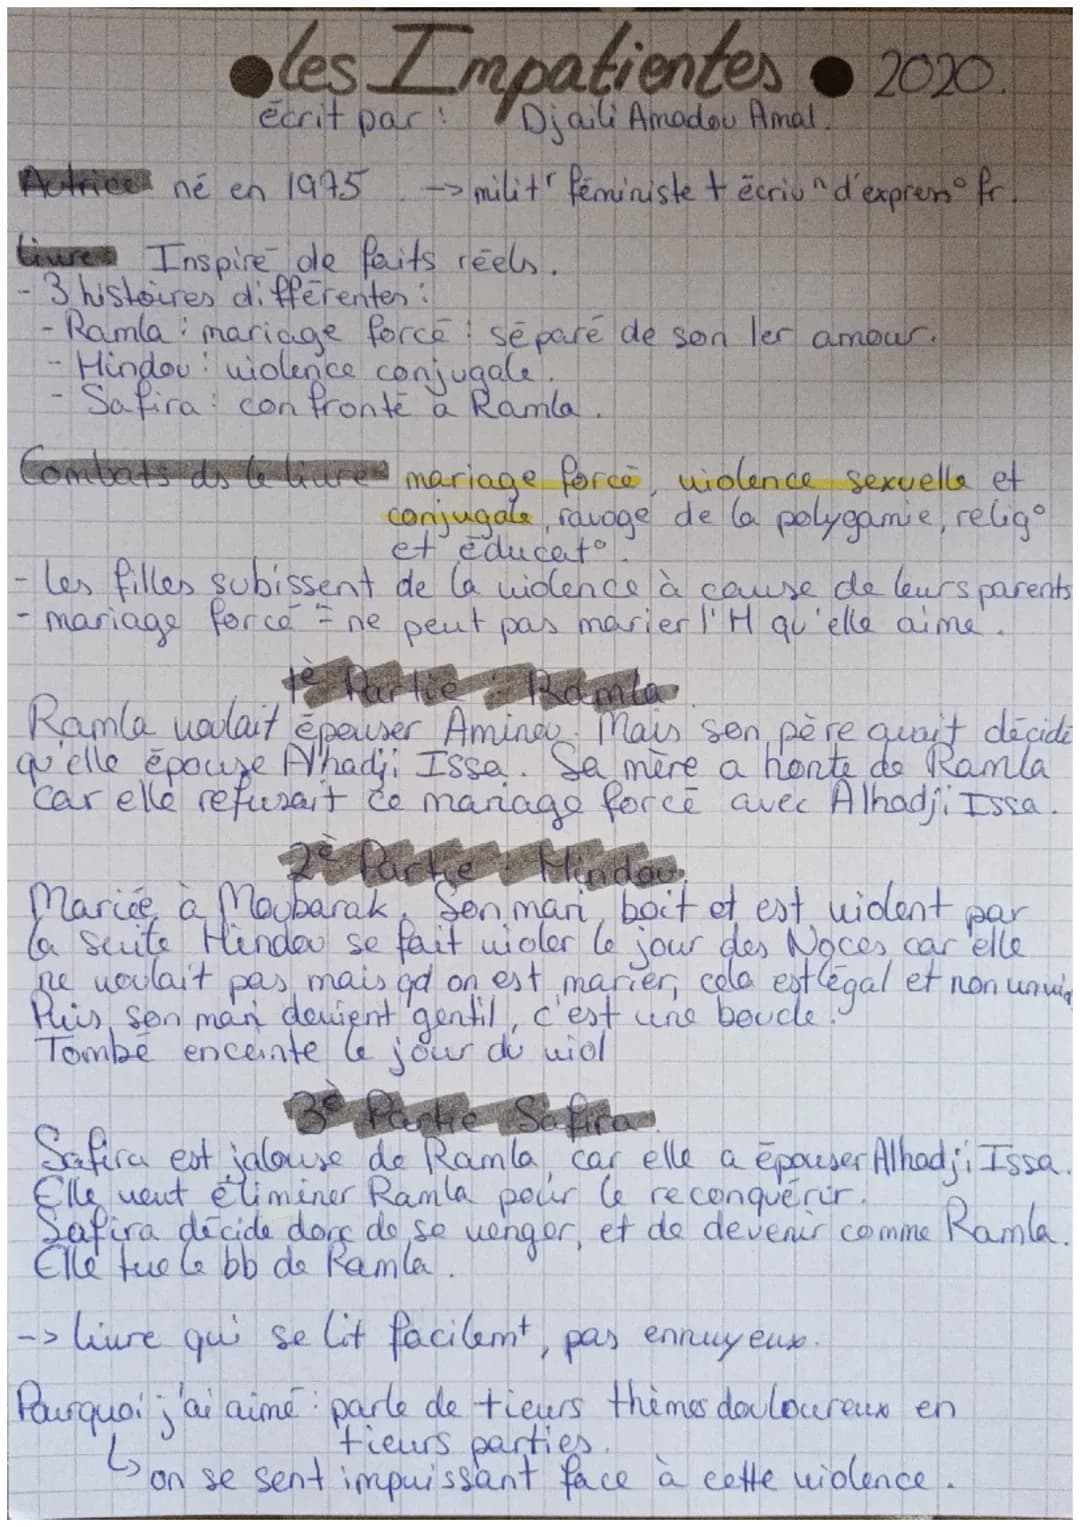 •les Impatientes • 2020.
écrit par : Djaili Amadou Amal.
Autrice né en 1975 -> militʳ féministe + écrivⁿ d'express° fr.
Livre Inspiré de faits réels.
- 3 histoires différentes :
- Ramla : mariage forcé : séparé de son 1er amour.
- Hindou : violence conjugale.
- Safira : confronté à Ramla.
Combats ds le livre mariage forcé, violence sexuelle et
conjugale, ravage de la polygamie, relig°
et éducat°.
- les filles subissent de la violence à cause de leurs parents
- mariage forcé = ne peut pas marier l'H qu'elle aime.
1è Partie : Ramla
Ramla voulait épouser Aminou. Mais son père avait décidé
qu'elle épouse Alhadji Issa. Sa mère a honte de Ramla
car elle refusait ce mariage forcé avec Alhadji Issa.
2è Partie : Hindou
Mariée à Moubarak. Son mari boit et est violent par
la suite Hindou se fait violer le jour des Noces, car elle
ne voulait pas mais qd on est marier, cela est légal et non un
Puis son mari devient gentil, c'est une boucle.
Tombé enceinte le jour du viol
3è Partie Safira
Safira est jalouse de Ramla, car elle a épouser Alhadji Issa.
Elle veut éliminer Ramla pour le reconquérir.
Safira décide donc de se venger, et de devenir comme Ramla.
Elle tue le bb de Ramla.
-> livre qui se lit facilemt, pas ennuyeux.
Pourquoi j'ai aimé : parle de +ieurs thèmes douloureux en
+ieurs parties.
↳ on se sent impuissant face à cette violence.